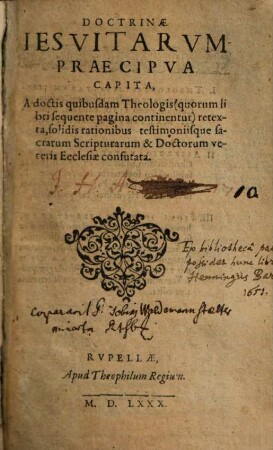 DOCTRINÆ
IESVITARVM
PRAECIPVA
CAPITA,
A doctis quibusdam Theologis (quorum li
bri sequente pagina continentur) retex-
ta, solidis rationibus testimoniisque sa-
crarum Scripturarum & Doctorum ve-
teris Ecclesiæ confutata.
J. H. A
10
Ex bibliotheca
possidet hunc libr
Henningus Bar
1651.
RVPELLÆ,
Apud Theophilum Regium.
M. D. LXXX.